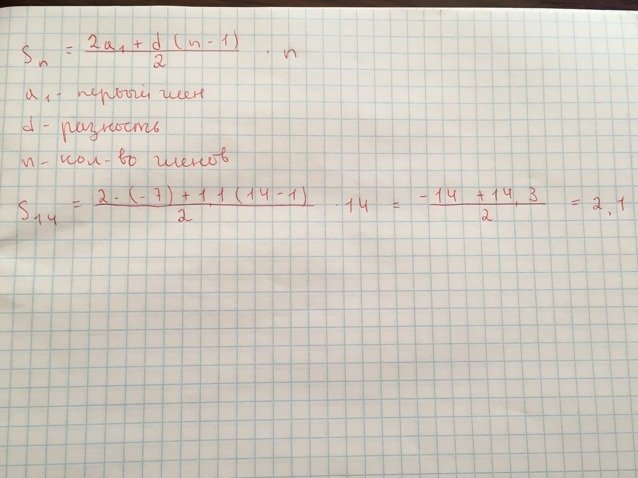 Sn = (2a1 + d(n-1))/2 · n
a1 - первый член
d - разность
n - кол-во членов
S14 = (2·(-7) + 1,1(14-1))/2 · 14 = (-14 + 14,3)/2 = 2,1